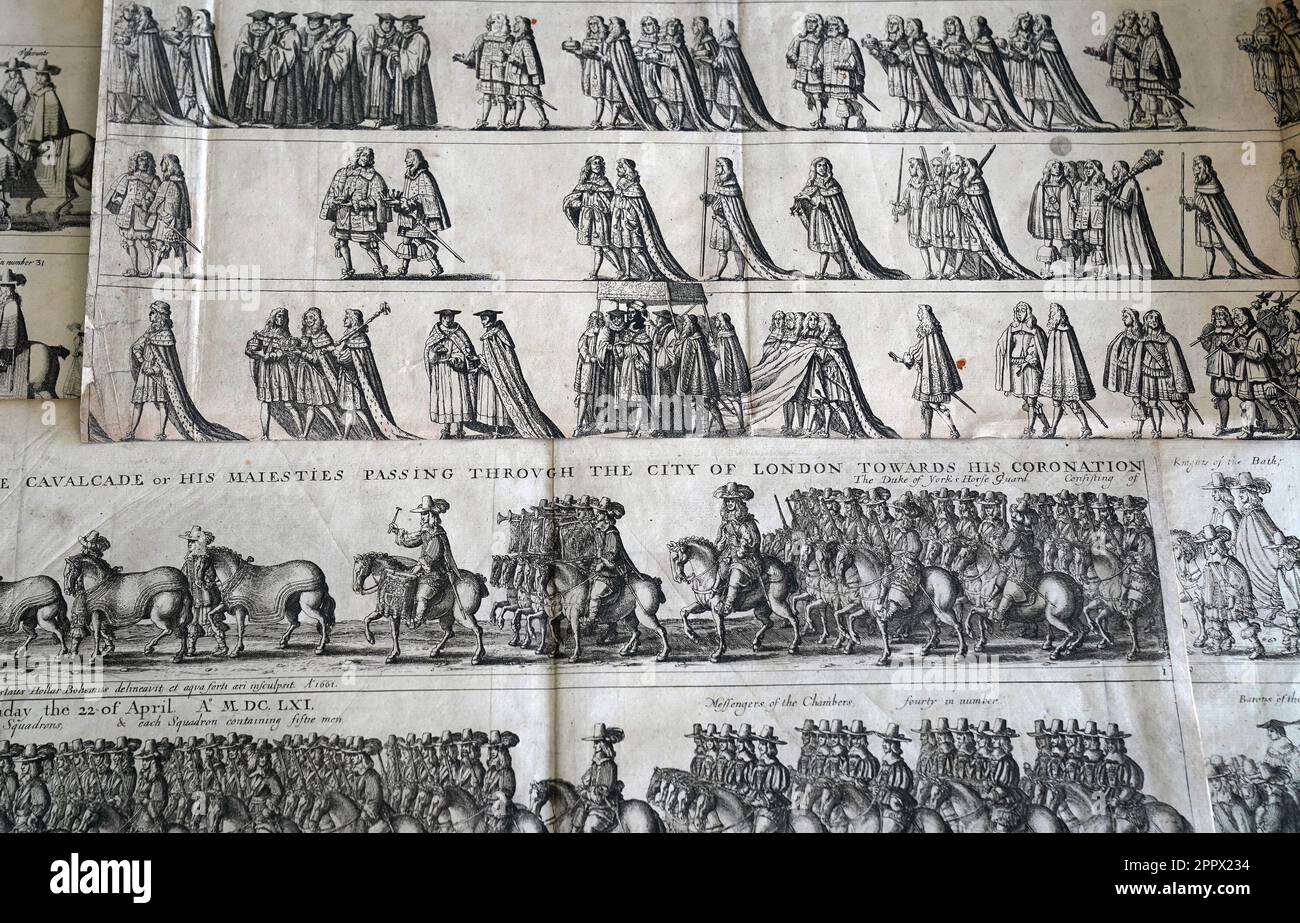 in number 31
E CAVALCADE OF HIS MAIESTIES PASSING THROVGH THE CITY OF LONDON TOWARDS HIS CORONATION
The Duke of Yorks Horse Guard Consisting of
Knights of the Bath;
slaus Hollar Bohemus delineavit, et aqua forti æri insculpsit. Aº 1661.
day the 22 of April. Aº M.DC.LXI.
Squadrons, & each Squadron containing fiftie men
Messengers of the Chambers, fourty in number
Barons of the
alamy
alamy
Image ID: 2PPX234
www.alamy.com